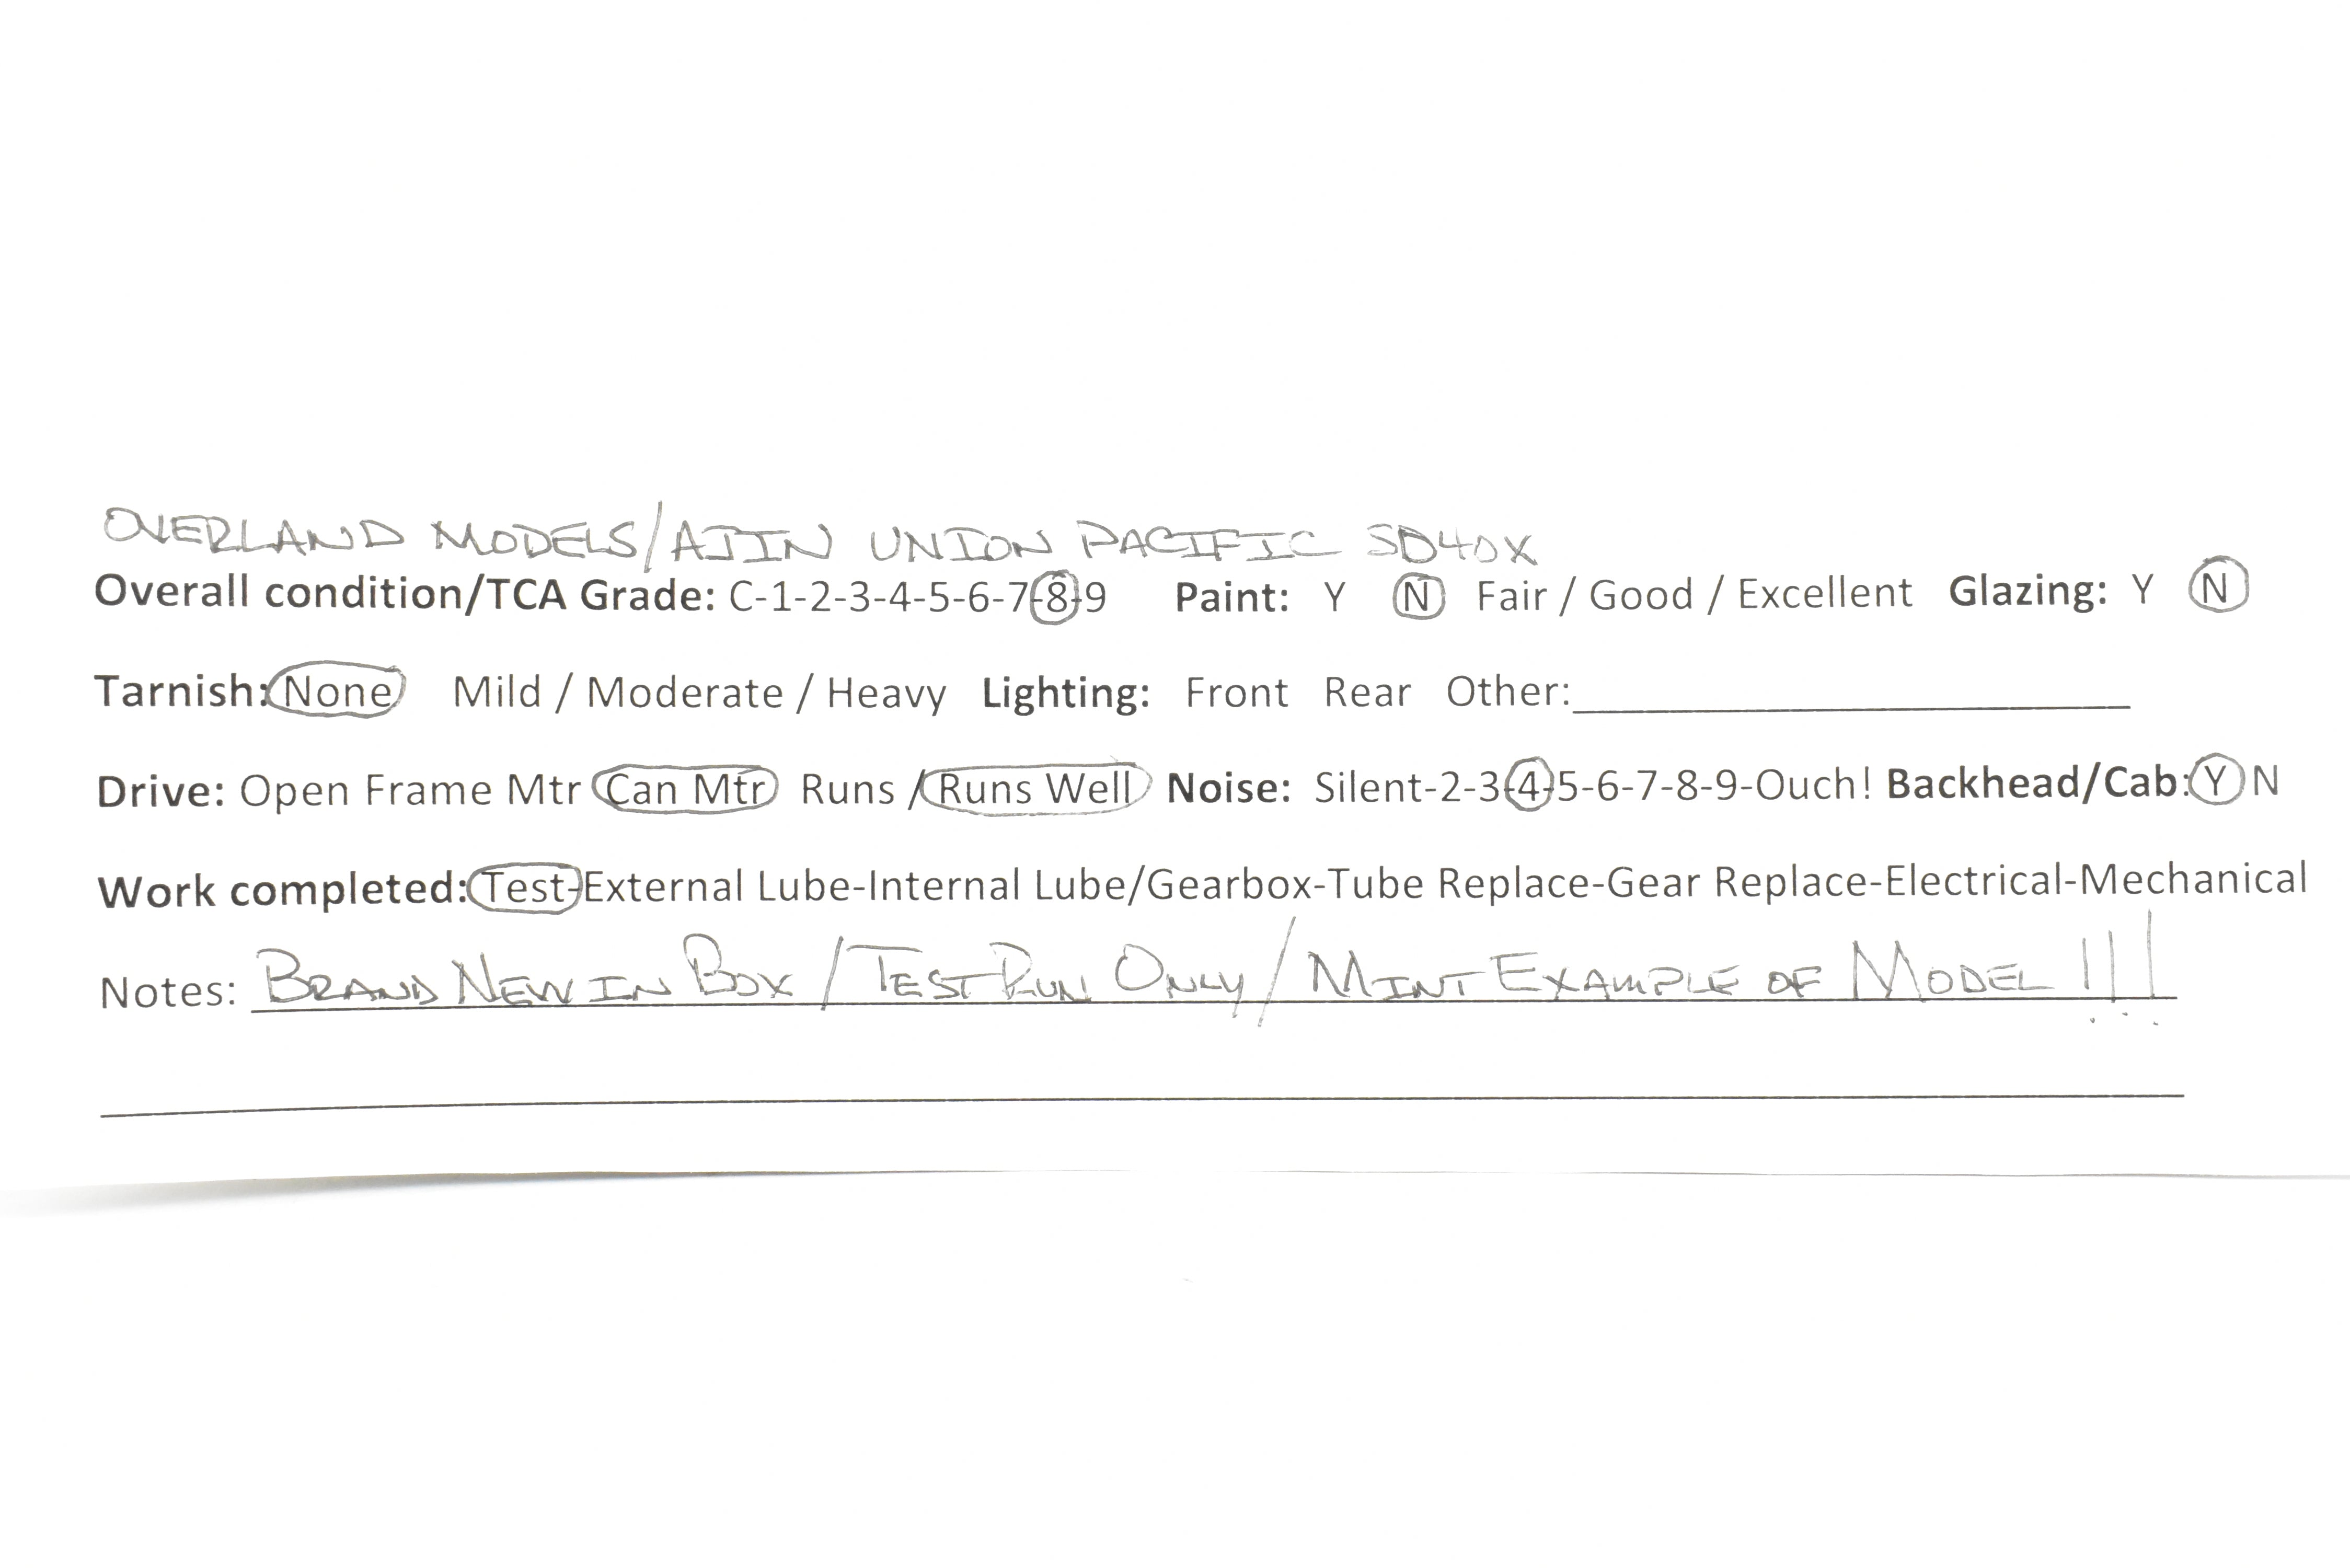 OVERLAND MODELS/AJIN UNION PACIFIC SD40X
Overall condition/TCA Grade: C-1-2-3-4-5-6-7-8-9 Paint: Y N Fair / Good / Excellent Glazing: Y N
Tarnish: None Mild / Moderate / Heavy Lighting: Front Rear Other:
Drive: Open Frame Mtr Can Mtr Runs / Runs Well Noise: Silent-2-3-4-5-6-7-8-9-Ouch! Backhead/Cab: Y N
Work completed: Test-External Lube-Internal Lube/Gearbox-Tube Replace-Gear Replace-Electrical-Mechanical
Notes: BRAND NEW IN BOX / TEST RUN ONLY / MINT EXAMPLE OF MODEL !!!